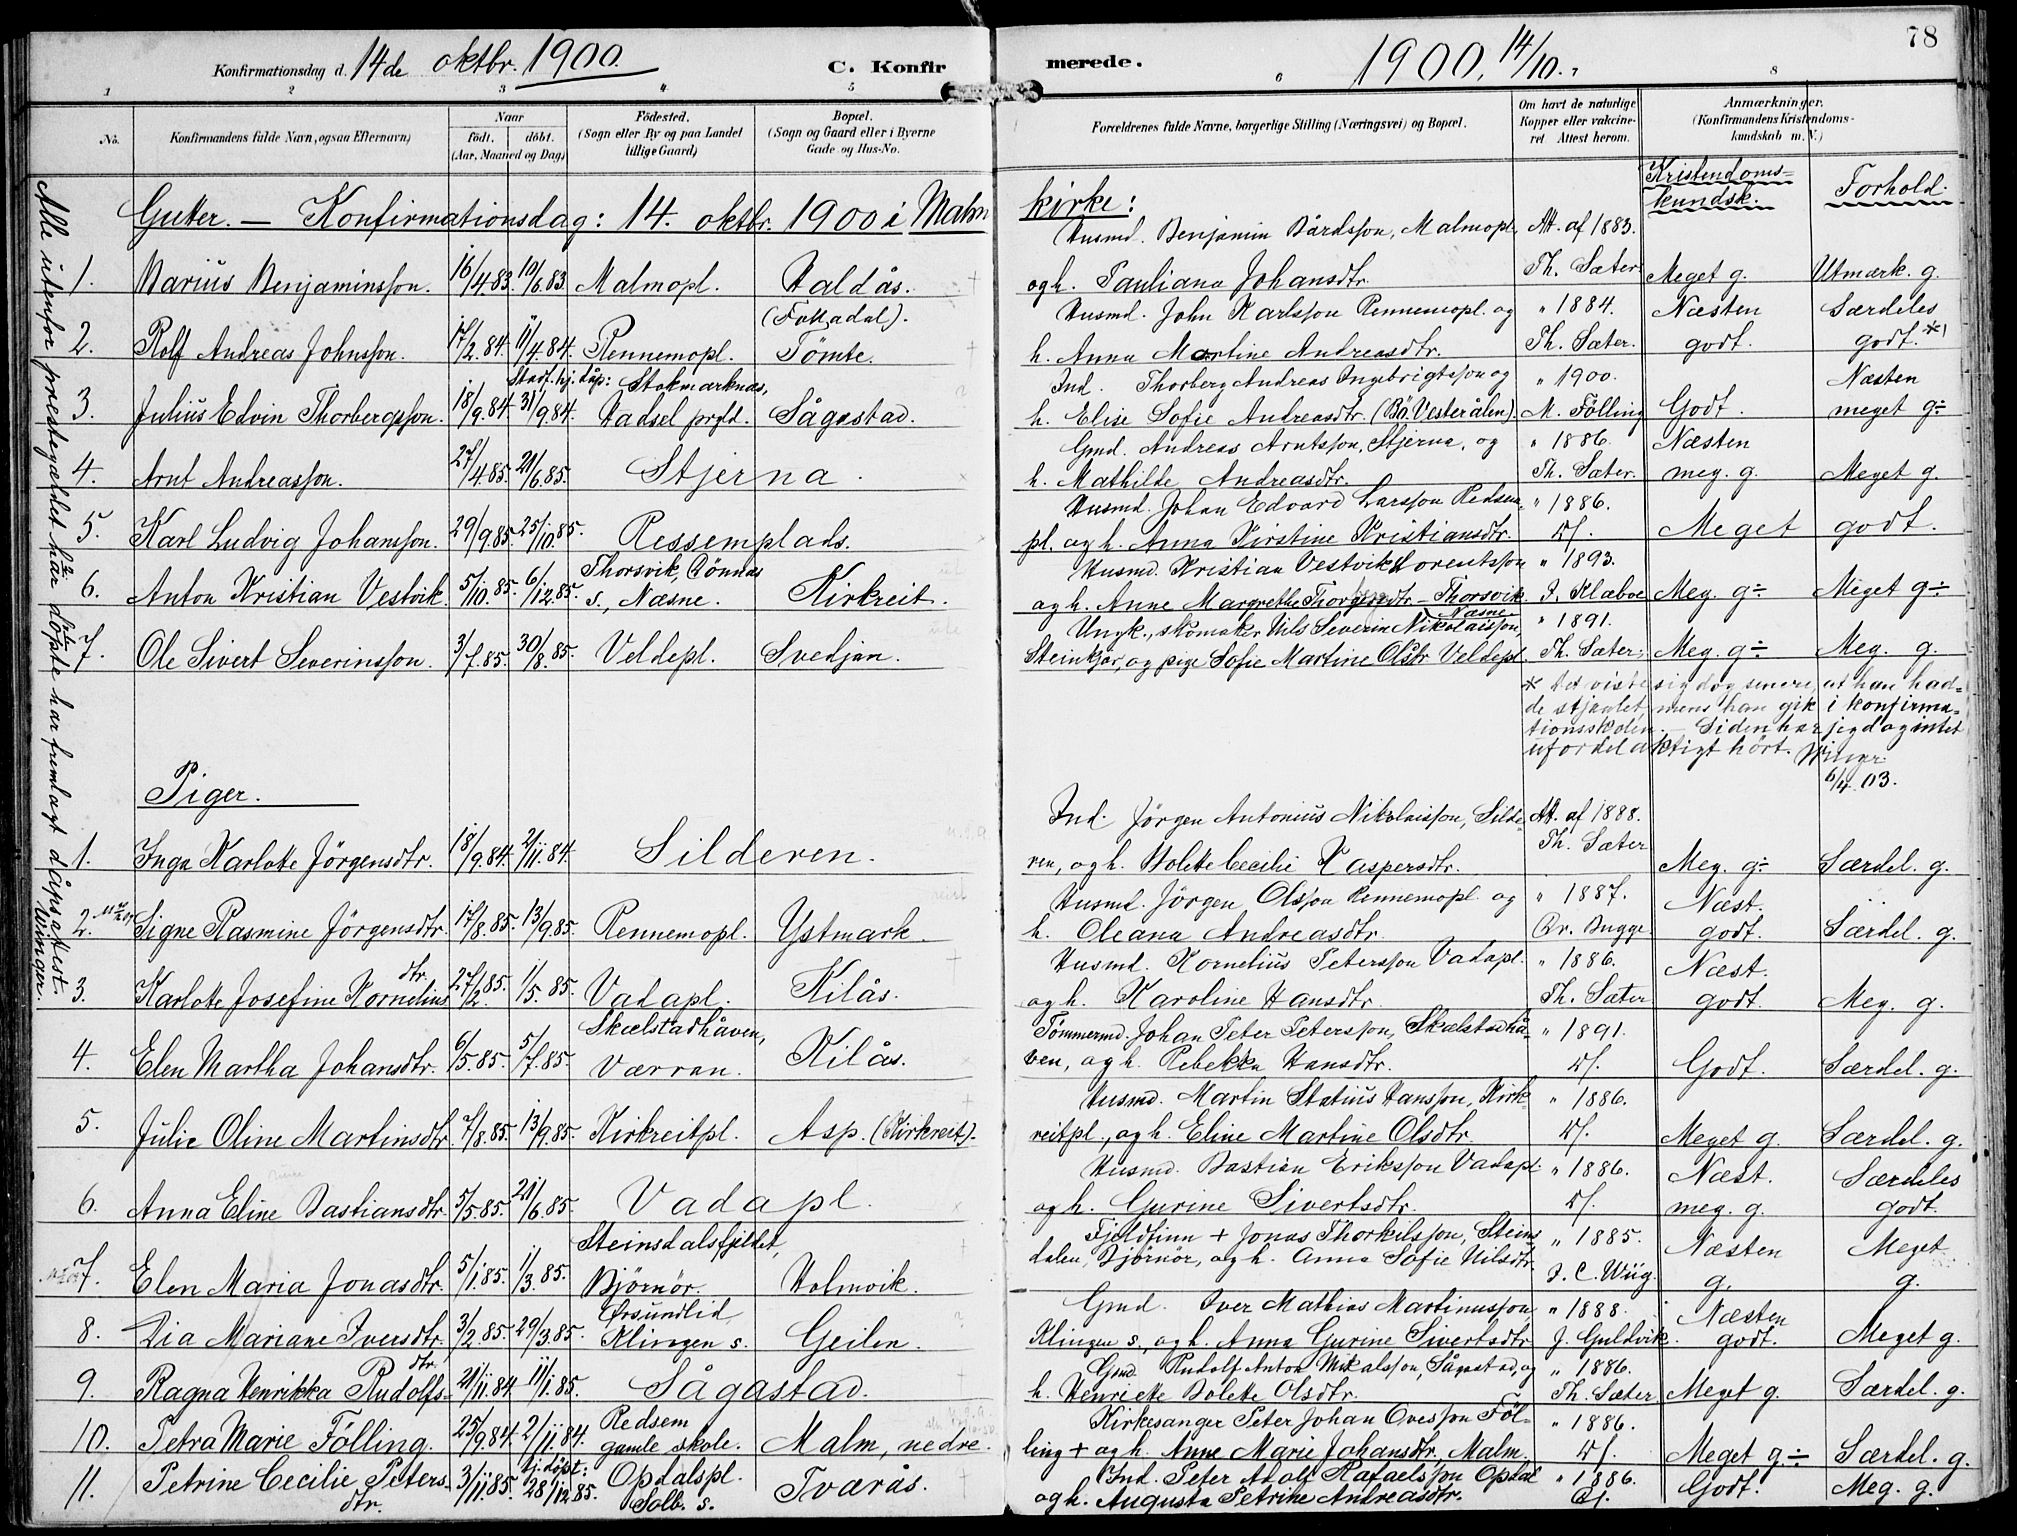 78
Konfirmationsdag d. 14de oktbr. 1900.
C. Konfirmerede.
1900, 14/10.
1 2 3 4 5 6 8
No.
Konfirmandens fulde Navn, ogsaa Efternavn)
Naar
født. døbt.
(Aar, Maaned og Dag)
Fødested.
(Sogn eller By og paa Landet tillige Gaard)
Bopæl.
(Sogn og Gaard eller i Byerne Gade og Hus-No.
Forældrenes fulde Navne, borgerlige Stilling (Næringsvei) og Bopæl.
Om havt de naturlige Kopper eller vakcineret Attest herom.
Anmærkninger.
(Konfirmandens Kristendomskundskab m. V.)
Kristendoms=
kundsk.
Forhold.
Alle utenfor prestegjældet döpte har fremlagt dåpsattest.
Winger.
Gutter. — Konfirmationsdag: 14. oktbr. 1900 i Malm
kirke:
Husmd. Benjamin Bårdsson, Malmopl. Att. af 1883.
1. Marius Benjaminsson. 16/4.83. 10/6.83. Malmopl. Haldås. ogh. Pauliana Johansdtr. Th. Sæter. Meget g. Utmærk. g.
(Folladal).
Husmd. John Karlsson Rennemopl. og " 1884. Næsten Særdeles
2. Rolf Andreas Johnsson. 17/2.84. 11/4.84. Rennemopl. Tömte. h. Anna Martine Andreasdtr. Th. Sæter. godt. godt.*)
Stadf. hj. dåp: Stokmarknæs,
Ind. Thorberg Andreas Ingebrigtsson og " 1900. Næsten
3. Julius Edvin Thorbergsson. 18/9.84. 31/9.84. Hadsel prgld. Sågastad. h. Elise Sofie Andreasdtr. (Bö. Vesterålen). M. Fölling Godt. meget g÷
Gmd. Andreas Arntsson, Stjerna, og " 1886. Næsten
4. Arnt Andreasson. 27/4.85. 21/6.85. Stjerna. h. Mathilde Andreasdtr. Th. Sæter. meg. g. Meget g.
Husmd. Johan Edvard Larsson Redsem " 1886.
5. Karl Ludvig Johansson. 29/9.85. 25/10.85. Ressemplads. pl. ogh. Anna Kirstine Kristiansdtr. Meget godt.
Thorsvik, Tönnæs
Husmd. Kristian Vestvik Lorentsson " 1893.
6. Anton Kristian Vestvik. 5/10.85. 6/12.85. s., Næsne. Kirkreit. ogh. Anne Margrethe Thorgersdtr - Thorsvik J. Klæboe Meg. g÷ Meget g÷
Næsne
Ungk., skomaker Nils Severin Nikolaisson, " 1891.
7. Ole Sivert Severinsson. 3/7.85. 30/8.85. Veldepl. Svedjan. Steinkjær, og pige Sofie Martine Olsdtr Veldepl. Th. Sæter. Meg. g÷ Meg. g.
* Det viste sig dog senere, at han had=
de stjaalet, mens han gik i konfirma=
tionsskolen. — Siden har jeg dog intet
ufordelaktigt hört. Winger
6/4 03.
Piger.
Ind. Jörgen Antonius Nikolaisson, Silde- Att. af 1888.
1. Inga Karlotte Jörgensdtr. 18/9.84. 2/11.84. Silderen. ren, ogh. Bolette Cecilie Kaspersdtr. Th. Sæter Meg. g÷ Særdel. g.
Husmd. Jörgen Olsson Rennemopl. og " 1887. Næst.
2. Signe Rasmine Jörgensdtr. 17/8.85. 13/9.85. Rennemopl. Ystmark. h. Oleana Andreasdtr. Br. Bugge godt. Særdel. g.
Husmd. Kornelius Petersson Vadapl. " 1886. Næst.
3. Karlotte Josefine Kornelius dtr. 27/2.85. 1/5.85. Vadapl. Kilås. ogh. Karoline Hansdtr. Th. Sæter godt. Meg. g.
Skælstadhåven,
Tömmermd. Johan Peter Petersson, Skælstadhå- " 1891.
4. Elen Martha Johansdtr. 6/5.85. 5/7.85. Værran. Kilås. ven, ogh. Rebekka Hansdtr. Godt. Særdel. g.
Husmd. Martin Statius Hansson, Kirk- " 1886.
5. Julie Oline Martinsdtr 7/8.85. 13/9.85. Kirkreitpl. Asp. (Kirkreit). reitpl., ogh. Eline Martine Olsdtr. Meget g. Særdel. g.
Husmd. Bastian Eriksson Vadapl. " 1886. Næst. Særdeles
6. Anna Eline Bastiansdtr. 5/5.85. 21/6.85. Vadapl. ogh. Gurine Sivertsdtr. meg. g. godt.
Steinsdalsfjeldet,
Fjeldfinn + Jonas Thorkilsson, Steins " 1885. Næsten Meget
7. Elen Maria Jonasdtr. 5/1.85. 1/3.85. Bjørnör. Holmvik. dalen, Bjørnör, ogh. Anna Sofie Nilsdtr. J. C. Wiig. g. g.
Örsundlid,
Gmd. Iver Mathias Martinusson, " 1888. Næsten
8. Dia Mariane Iversdtr. 3/2.85. 29/3.85. Klingen s. Geilin. Klingen s., ogh. Anna Gurine Sivertsdtr. J. Guldvik. godt. Meget g.
Gmd. Rudolf Anton Mikalsson, Sågastad, og " 1886.
9. Ragna Henrikka Rudolfs dtr. 21/11.84. 11/1.85. Sågastad. h. Henriette Bolette Olsdtr. Th. Sæter. Meget g. Særdel. g.
Redsem
Kirkesanger Peter Johan Ovesson Föl- " 1886.
10. Petra Marie Fölling. 25/9.84. 2/11.84. gamle skole. Malm, nedre. ling + ogh. Anne Marie Johansdtr, Malm. Meget g.÷ Særdel. g.
hj. döpt:
Ind. Peter Adolf Rafaelsson Opdal " 1886.
11. Petrine Cecilie Peters dtr. 3/11.85. 28/12.85. Opdalspl. Solb. s. Tværås. ogh. Augusta Petrine Andreasdtr. Godt. Meg. g.